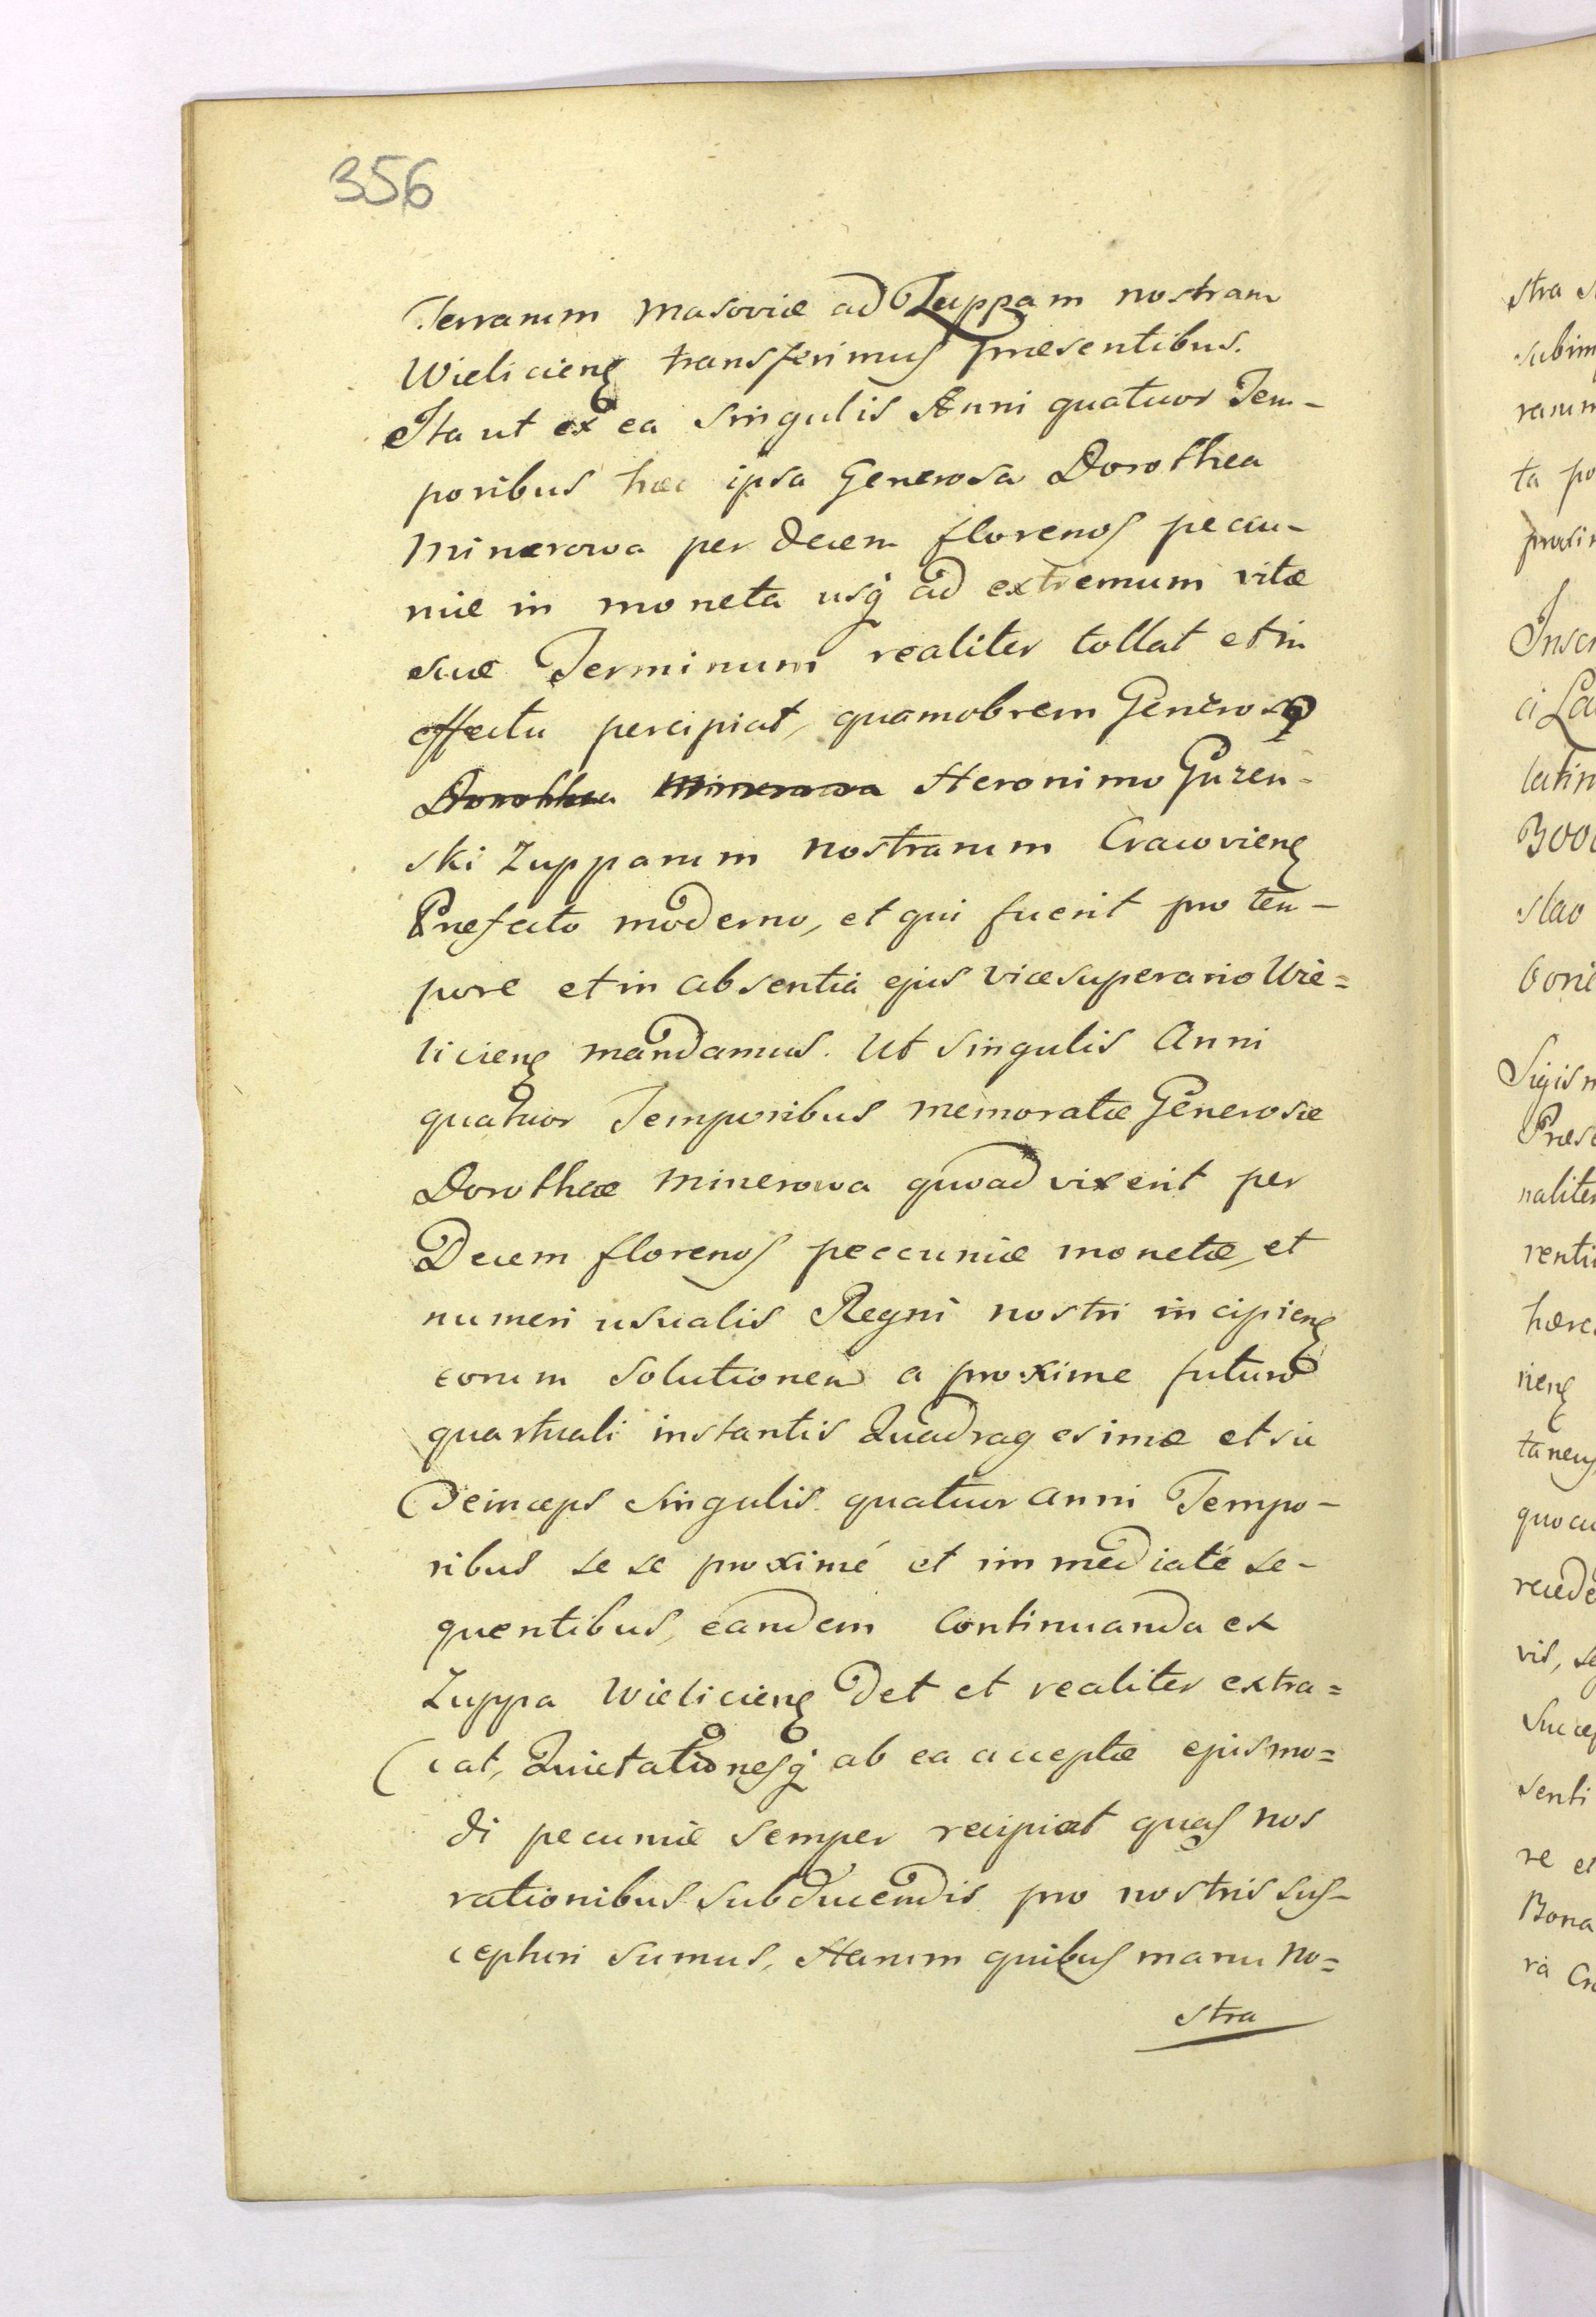 356
Terrarum Masoviæ ad Zuppam nostram
Wieliciens transferimus præsentibus.
Ita ut ex ea singulis Anni quatuor Tem-
poribus hæc ipsa Generosa Dorothea
Minerowa per decem florenos pecu-
niæ in moneta usq ad extremum vitæ
suæ Terminum realiter tollat et in
effectu percipiat, quamobrem Generoso
Dorothea Minerowa Heronimo Guzen-
ski Zupparum nostrarum Cracoviens
Præfecto moderno, et qui fuerit pro tem-
pore et in absentia ejus vicesuperario Wie=
liciens mandamus. Ut singulis Anni
quatuor Temporibus memoratæ Generosæ
Dorotheæ Minerowa quoad vixerit per
Decem florenos peccuniæ monetæ, et
numeri usualis Regni nostri incipiens
eorum solutionem a proxime futuro
quartuali instantis Quadragesimæ et sic
deinceps singulis quatuor anni Tempo-
ribus se se proximé et immediaté se-
quentibus, eandem continuanda ex
Zuppa Wieliciens det et realiter extra=
cat, Quietationesq ab ea acceptæ ejusmo=
di pecuniæ semper recipiat quas nos
rationibus subducendis pro nostris sus-
cepturi sumus, Harum quibus manu no=
stra